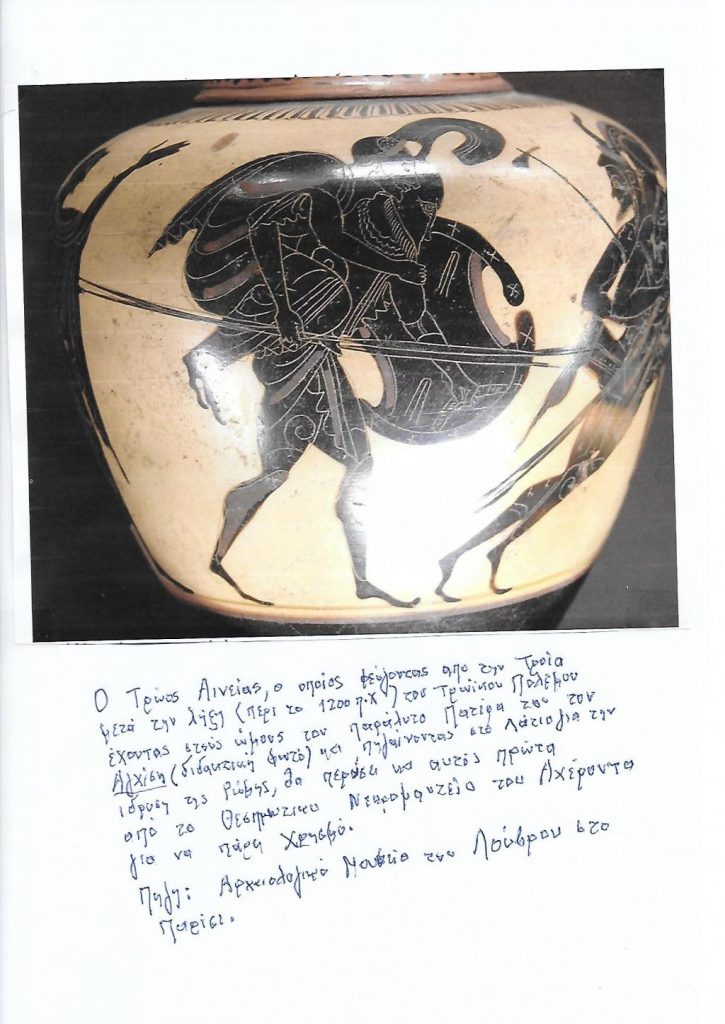 Ο Τρώας Αινείας, ο οποίος φεύγοντας απο την Τροία
μετά την λήξη (περι το 1200 π.χ) του Τρωϊκου Πολέμου
έχοντας στους ώμους τον παράλυτο Πατέρα του τον
Αγχίση (διδακτική φωτο) και πηγαίνοντας στο Λάτιο για την
ιδρυση της Ρώμης, θα περάσει και αυτός πρώτα
απο το Θεσπρωτικο Νεκρομαντείο του Αχέροντα
για να πάρει Χρησμό.
Πηγη: Αρχαιολογικό Μουσείο του Λούβρου στο
Παρίσι.